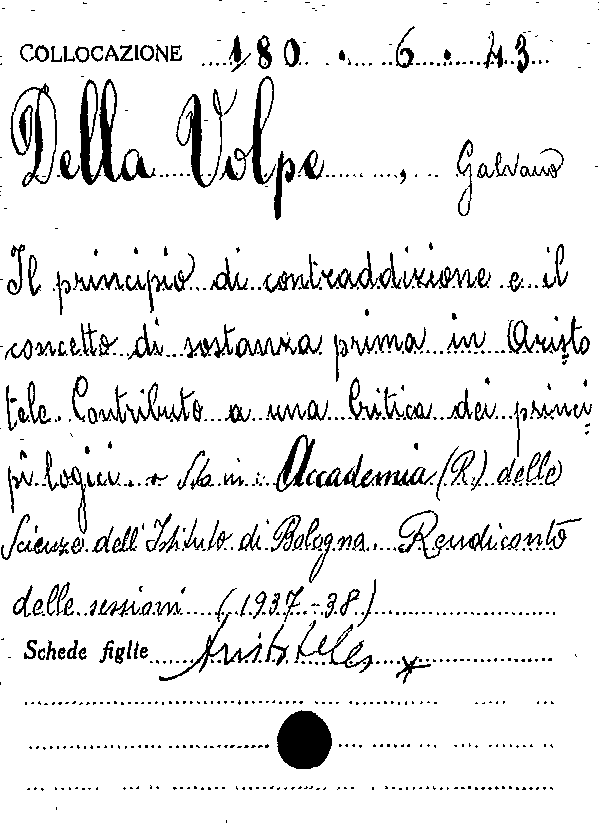 COLLOCAZIONE 180 . 6 . 43
Della Volpe , Galvano
Il principio di contraddizione e il
concetto di sostanza prima in Aristo
tele. Contributo a una Critica dei princi
pî logici. + Sta in: Accademia (R.) delle
Scienze dell'Istituto di Bologna. Rendiconto
delle sessioni (1937-38)
Schede figlie Aristoteles *